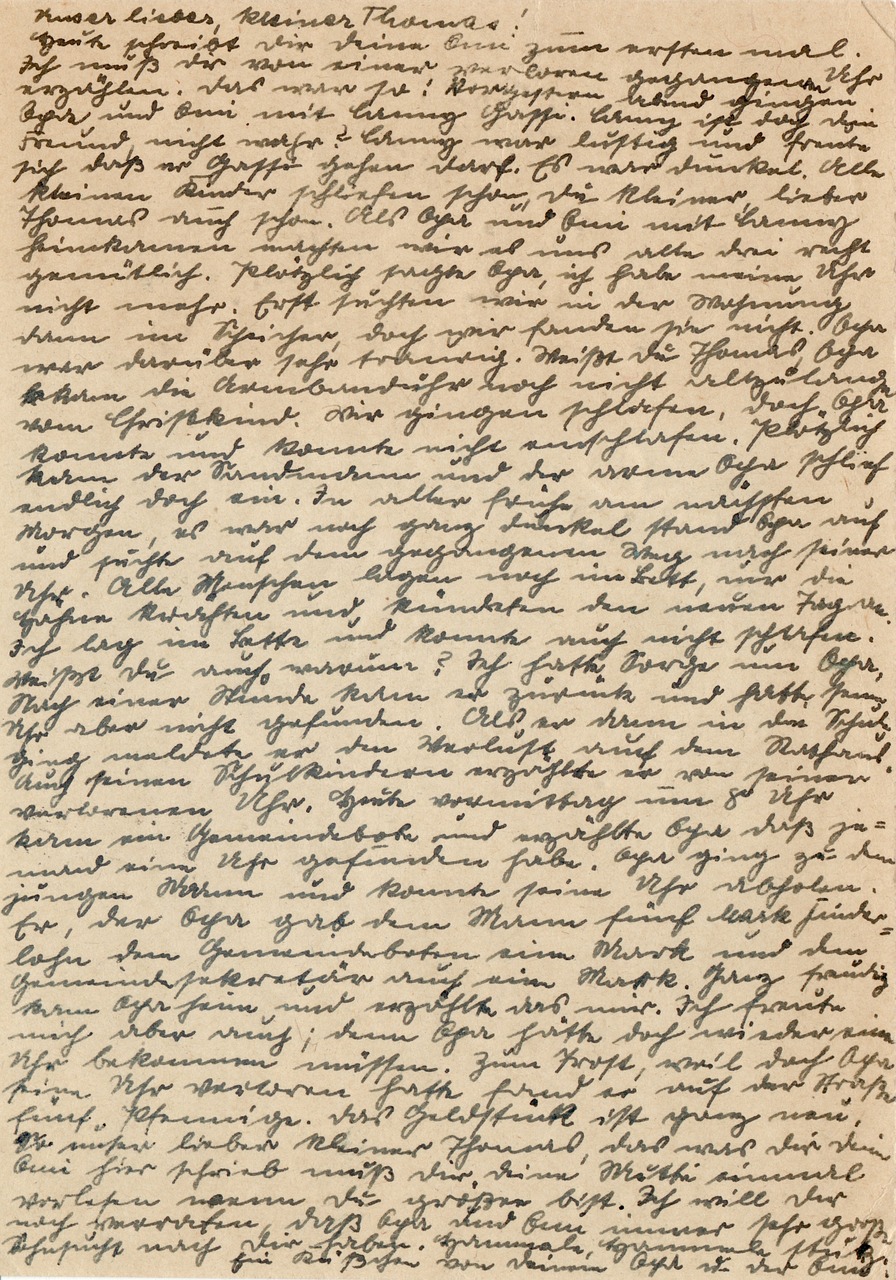 Unser lieber, kleiner Thomas!
Heute schreibt dir deine Omi zum ersten mal.
Ich muß dir von einer verloren gegangenen Uhr
erzählen. Das war so! Vorgestern abend gingen
Opa und Omi mit Lanny Gassi. Lanny ist doch dein
Freund, nicht wahr? Lanny war lustig und freute
sich daß er Gassi gehen darf. Es war dunkel. Alle
kleinen Kinder schliefen schon, du kleiner, lieber
Thomas auch schon. Als Opa und Omi mit Lanny
heimkamen machten wir es uns alle drei recht
gemütlich. Plötzlich sagte Opa, ich habe meine Uhr
nicht mehr. Erst suchten wir in der Wohnung
dann im Speicher, doch wir fanden sie nicht. Opa
war darüber sehr traurig. Weißt du Thomas, Opa
bekam die Armbanduhr noch nicht allzulange
vom Christkind. Wir gingen schlafen, doch Opa
konnte und konnte nicht einschlafen. Plötzlich
kam der Sandmann und der arme Opa schlief
endlich doch ein. In aller frühe am nächsten
Morgen, es war noch ganz dunkel stand Opa auf
und suchte auf dem gegangenen Weg nach seiner
Uhr. Alle Menschen lagen noch im Bett, nur die
Hähne krähten und kündeten den neuen Tag an.
Ich lag im Bette und konnte auch nicht schlafen.
Weißt du auch warum? Ich hatte Sorge um Opa,
Nach einer Stunde kam er zurück und hatte seine
Uhr aber nicht gefunden. Als er dann in die Schule
ging meldete er den Verlust auf dem Rathaus.
Auch seinen Schulkindern erzählte er von seiner
verlorenen Uhr. Heute vormittag um 8 Uhr
kam ein Gemeindebote und erzählte Opa daß je=
mand eine Uhr gefunden habe. Opa ging zu dem
jungen Mann und konnte seine Uhr abholen.
Er, der Opa gab dem Mann fünf Mark Finder=
lohn dem Gemeindeboten eine Mark und dem
Gemeindesekretär auch eine Mark. Ganz freudig
kam Opa heim und erzählte das mir. Ich freute
mich aber auch; denn Opa hätte doch wieder eine
Uhr bekommen müssen. Zum Trost, weil doch Opa
seine Uhr verloren hatte fand er auf der Straße
fünf Pfennige. Das Geldstück ist ganz neu.
So unser lieber kleiner Thomas, das was dir deine
Omi hier schrieb muß dir deine Mutti einmal
vorlesen wenn du größer bist. Ich will dir
noch verraten, daß Opa und Omi immer sehr große
Sehnsucht nach dir haben.
Ein Küßchen von deinem Opa u. der Omi